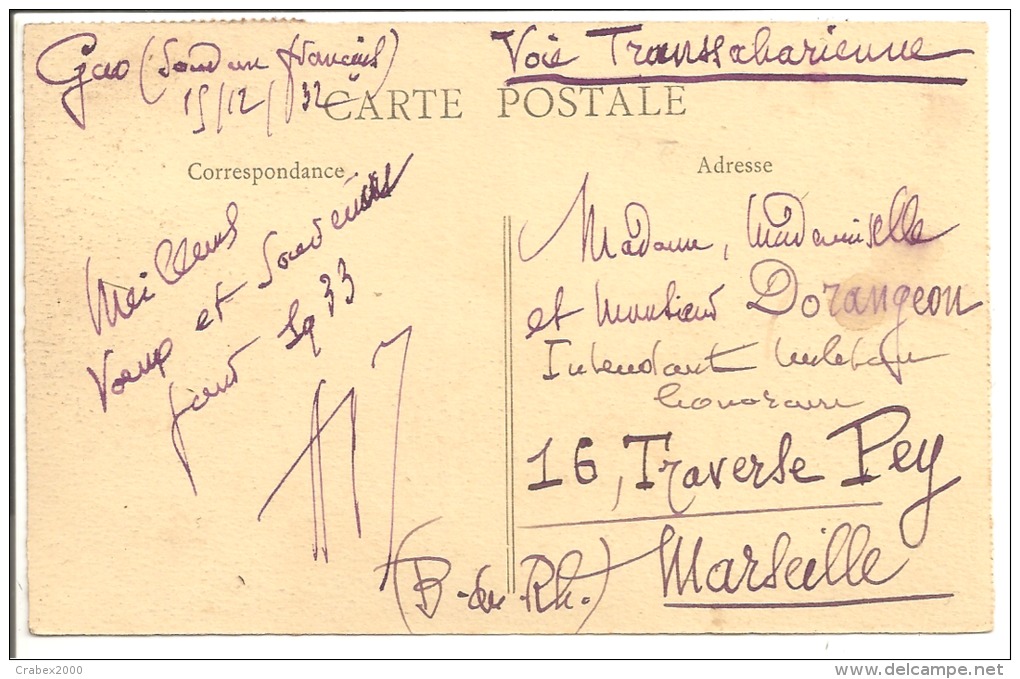 Gao (Soudan français)
15/12/32
Voie Transsaharienne
CARTE POSTALE
Correspondance
Adresse
Meilleurs
Voeux et Souvenirs
pour 1933
Madame, Mademoiselle
et Monsieur Dorangeon
Intendant militaire
honoraire
16, Traverse Pey
Marseille
(B-du-Rh.)
Crabex2000
www.delcampe.net